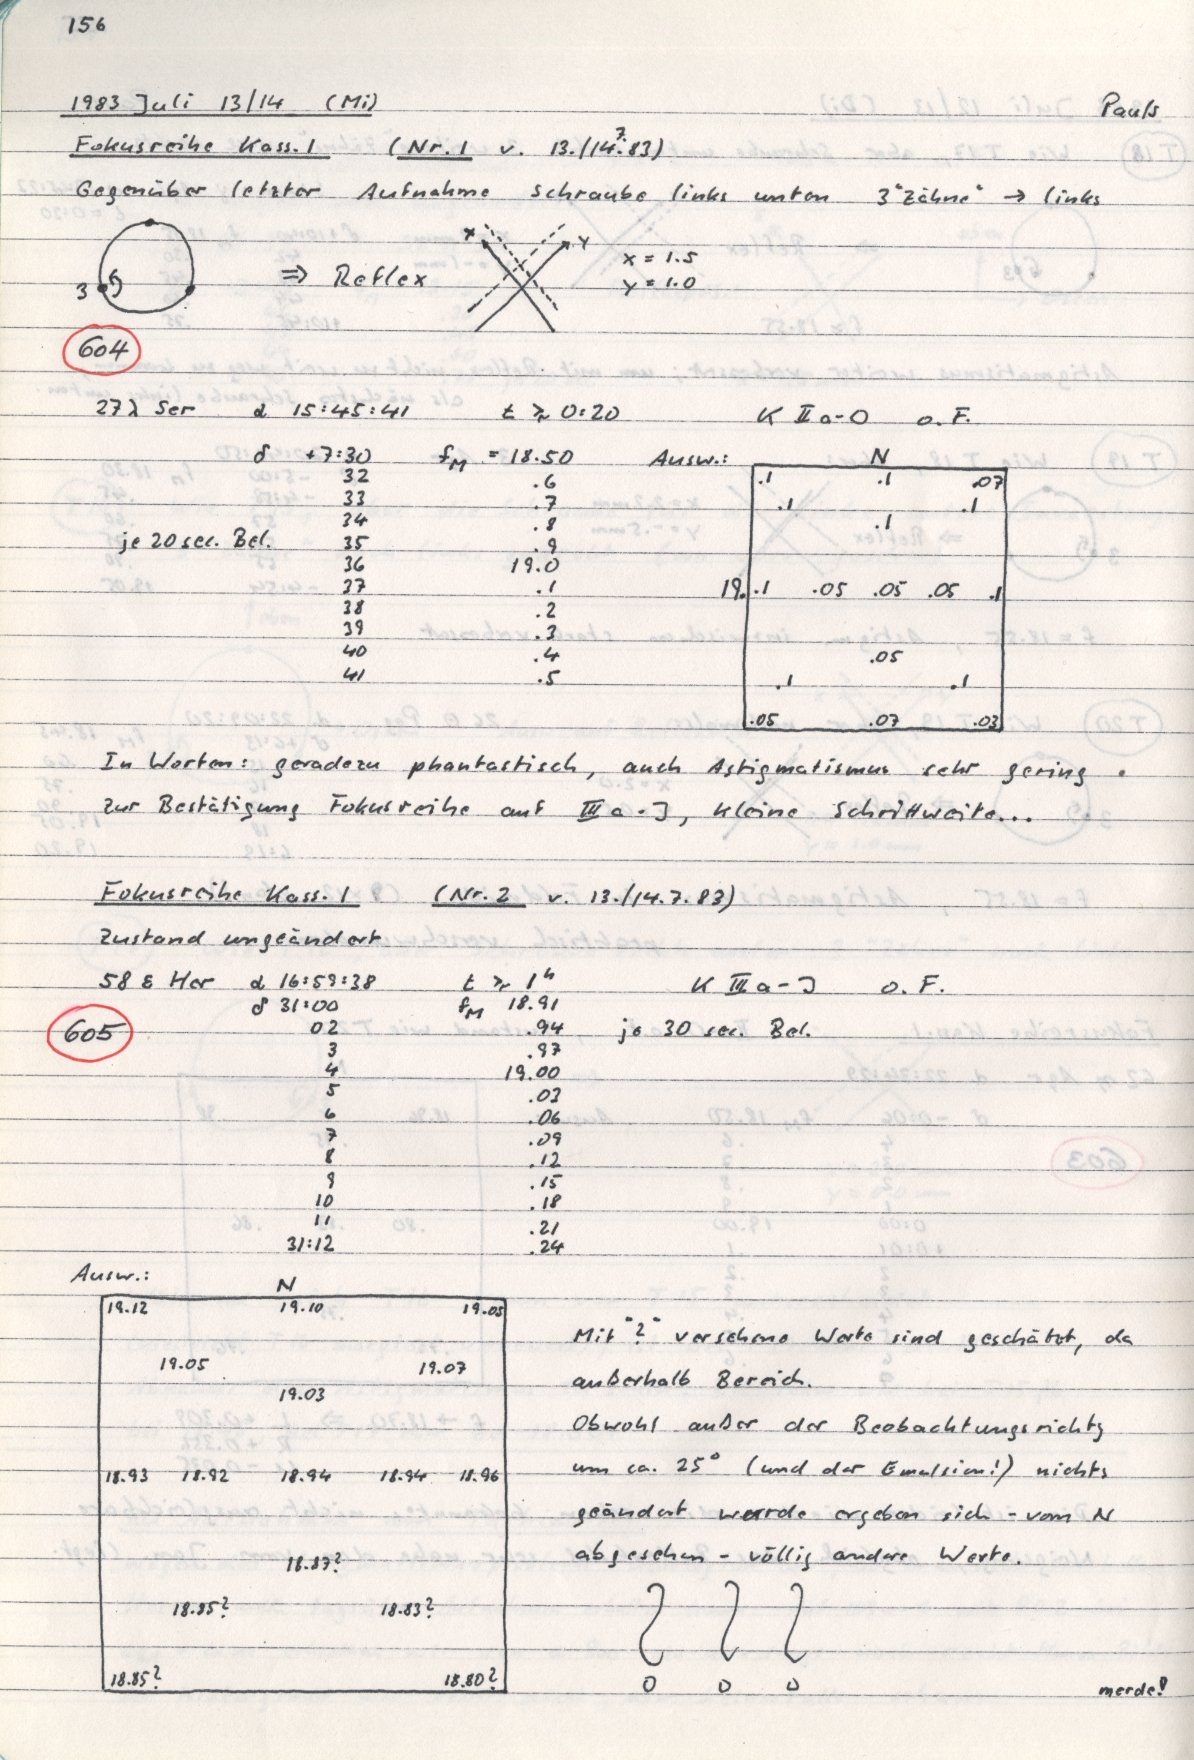 156
1983 Juli 13/14 (Mi) Pauls
Fokusreihe Kass. 1 (Nr. 1 v. 13./14.7.83)
Gegenüber letzter Aufnahme Schraube links unten 3 "Zähne" → links
3 ⇒ Reflex x y x = 1.5
y = 1.0
604
27 λ Ser α 15:45:41 t ≳ 0:20 K II a-O o. F.
δ +7:30 fM = 18.50 Ausw.: N
32 .6
33 .7
34 .8
je 20 sec. Bel. 35 .9
36 19.0
37 .1
38 .2
39 .3
40 .4
41 .5
.1 .1 .07
.1 .1
.1
19. .1 .05 .05 .05 .1
.05
.1 .1
.05 .07 .03
In Worten: geradezu phantastisch, auch Astigmatismus sehr gering.
Zur Bestätigung Fokusreihe auf III a-J, kleine Schrittweite...
Fokusreihe Kass. 1 (Nr. 2 v. 13./14.7.83)
Zustand ungeändert
58 ε Her α 16:59:38 t ≳ 1h K III a-J o. F.
δ 31:00 fM 18.91
605 02 .94 je 30 sec. Bel.
3 .97
4 19.00
5 .03
6 .06
7 .09
8 .12
9 .15
10 .18
11 .21
31:12 .24
Ausw.: N
19.12 19.10 19.05
19.05 19.07
19.03
18.93 18.92 18.94 18.94 18.96
18.87?
18.85? 18.83?
18.85? 18.80?
Mit "?" versehene Werte sind geschätzt, da
außerhalb Bereich.
Obwohl außer der Beobachtungsrichtg
um ca. 25° (und der Emulsion!) nichts
geändert wurde ergeben sich - vom N
abgesehen - völlig andere Werte.
? ? ?
merde!